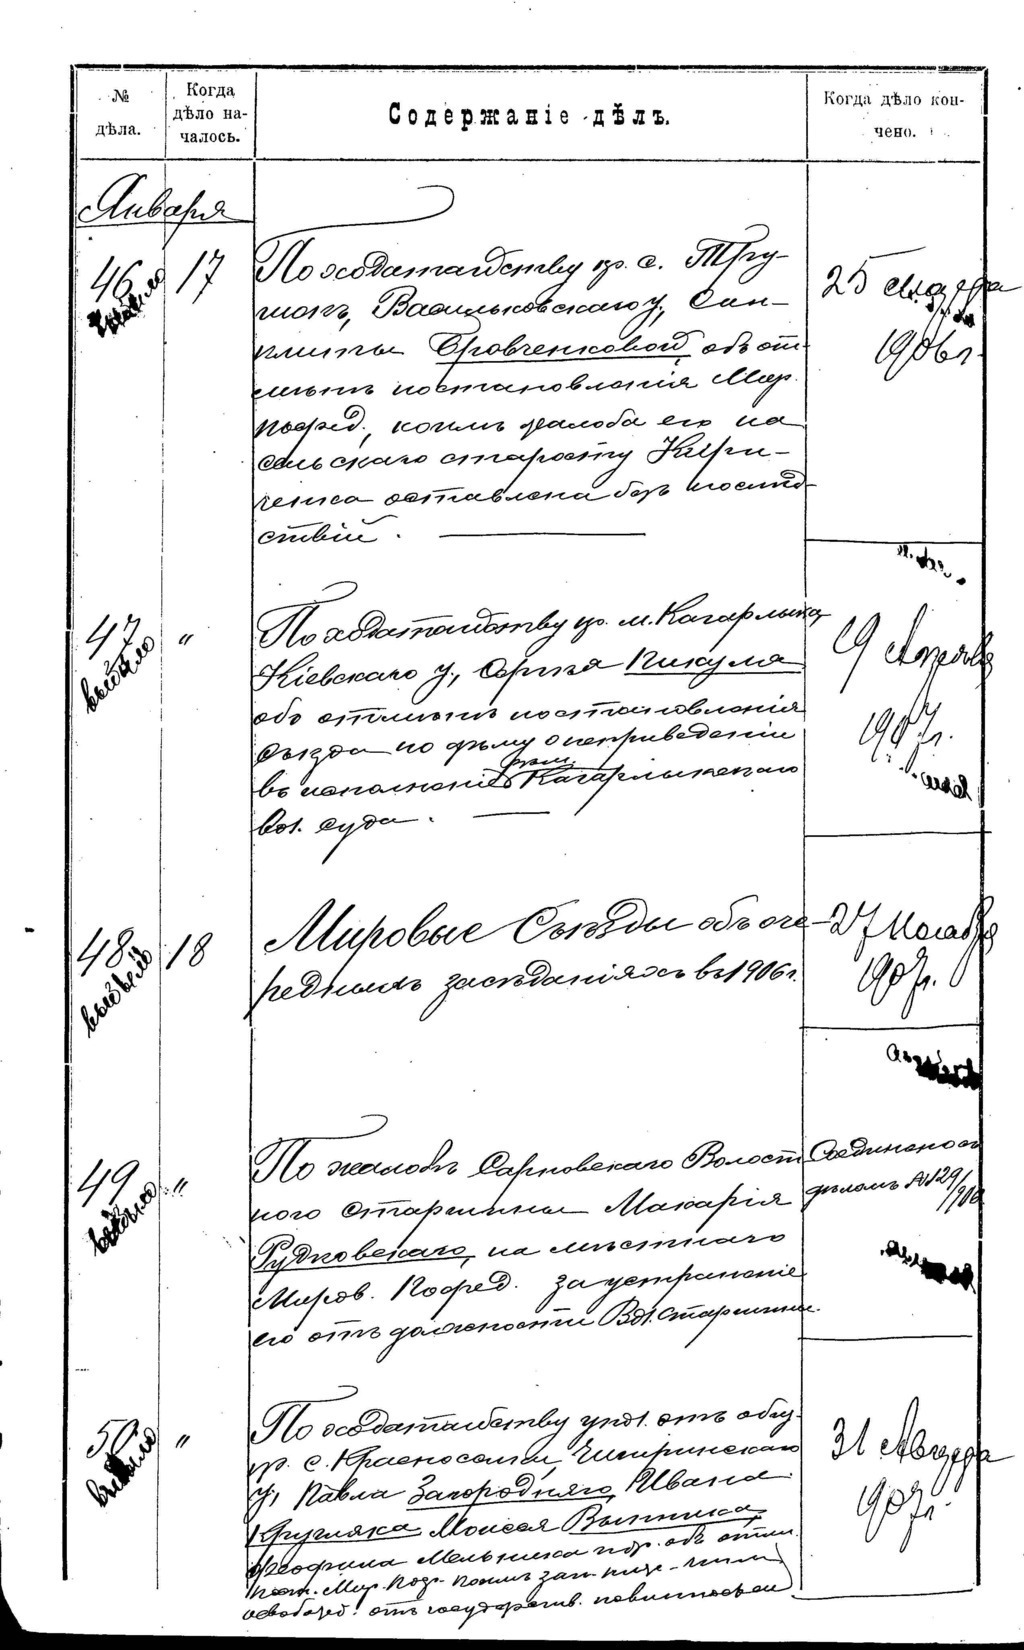 № дѣла.
Когда дѣло началось.
Содержаніе дѣлъ.
Когда дѣло кончено.
Января
46
17
По ходатайству кр. с. Тру-
Васильковскаго у., Син-
Бровченковой, объ от-
мѣнѣ постановленія Мир.
посред., коимъ жалоба его на
сельскаго старосту Кири-
ченка оставлена безъ послѣд-
ствій.
25
1906 г.
47
выбыло
"
По ходатайству кр. м. Кагарлыка,
Кіевскаго у., Пикуля
объ отмѣнѣ постановленія
Съѣзда по дѣлу о неприведеніи
въ исполненіе рѣш. Кагарлыкскаго
вол. суда.
19 Апрѣля
1907 г.
48
выбыло
18
Мировые Съѣзды объ оче-
редныхъ засѣданіяхъ въ 1906 г.
27 Ноября
1907 г.
49
выбыло
"
По жалобѣ Сарновскаго Волост-
ного Старшины Макарія
Рудковскаго, на мѣстнаго
Миров. Посред. за устраненіе
его отъ должности Вол. Старшины.
Соединено съ
дѣломъ № 129/906
50
выбыло
"
По ходатайству упол. отъ общ.
кр. с. Красноселья, Чигиринскаго
у., Павла Загородняго, Ивана
Кругляка, Моисея
Феофила Мельника объ отмѣн.
пост. Мир. Поср.
освобожд. отъ государств. повинностей
31
1907 г.